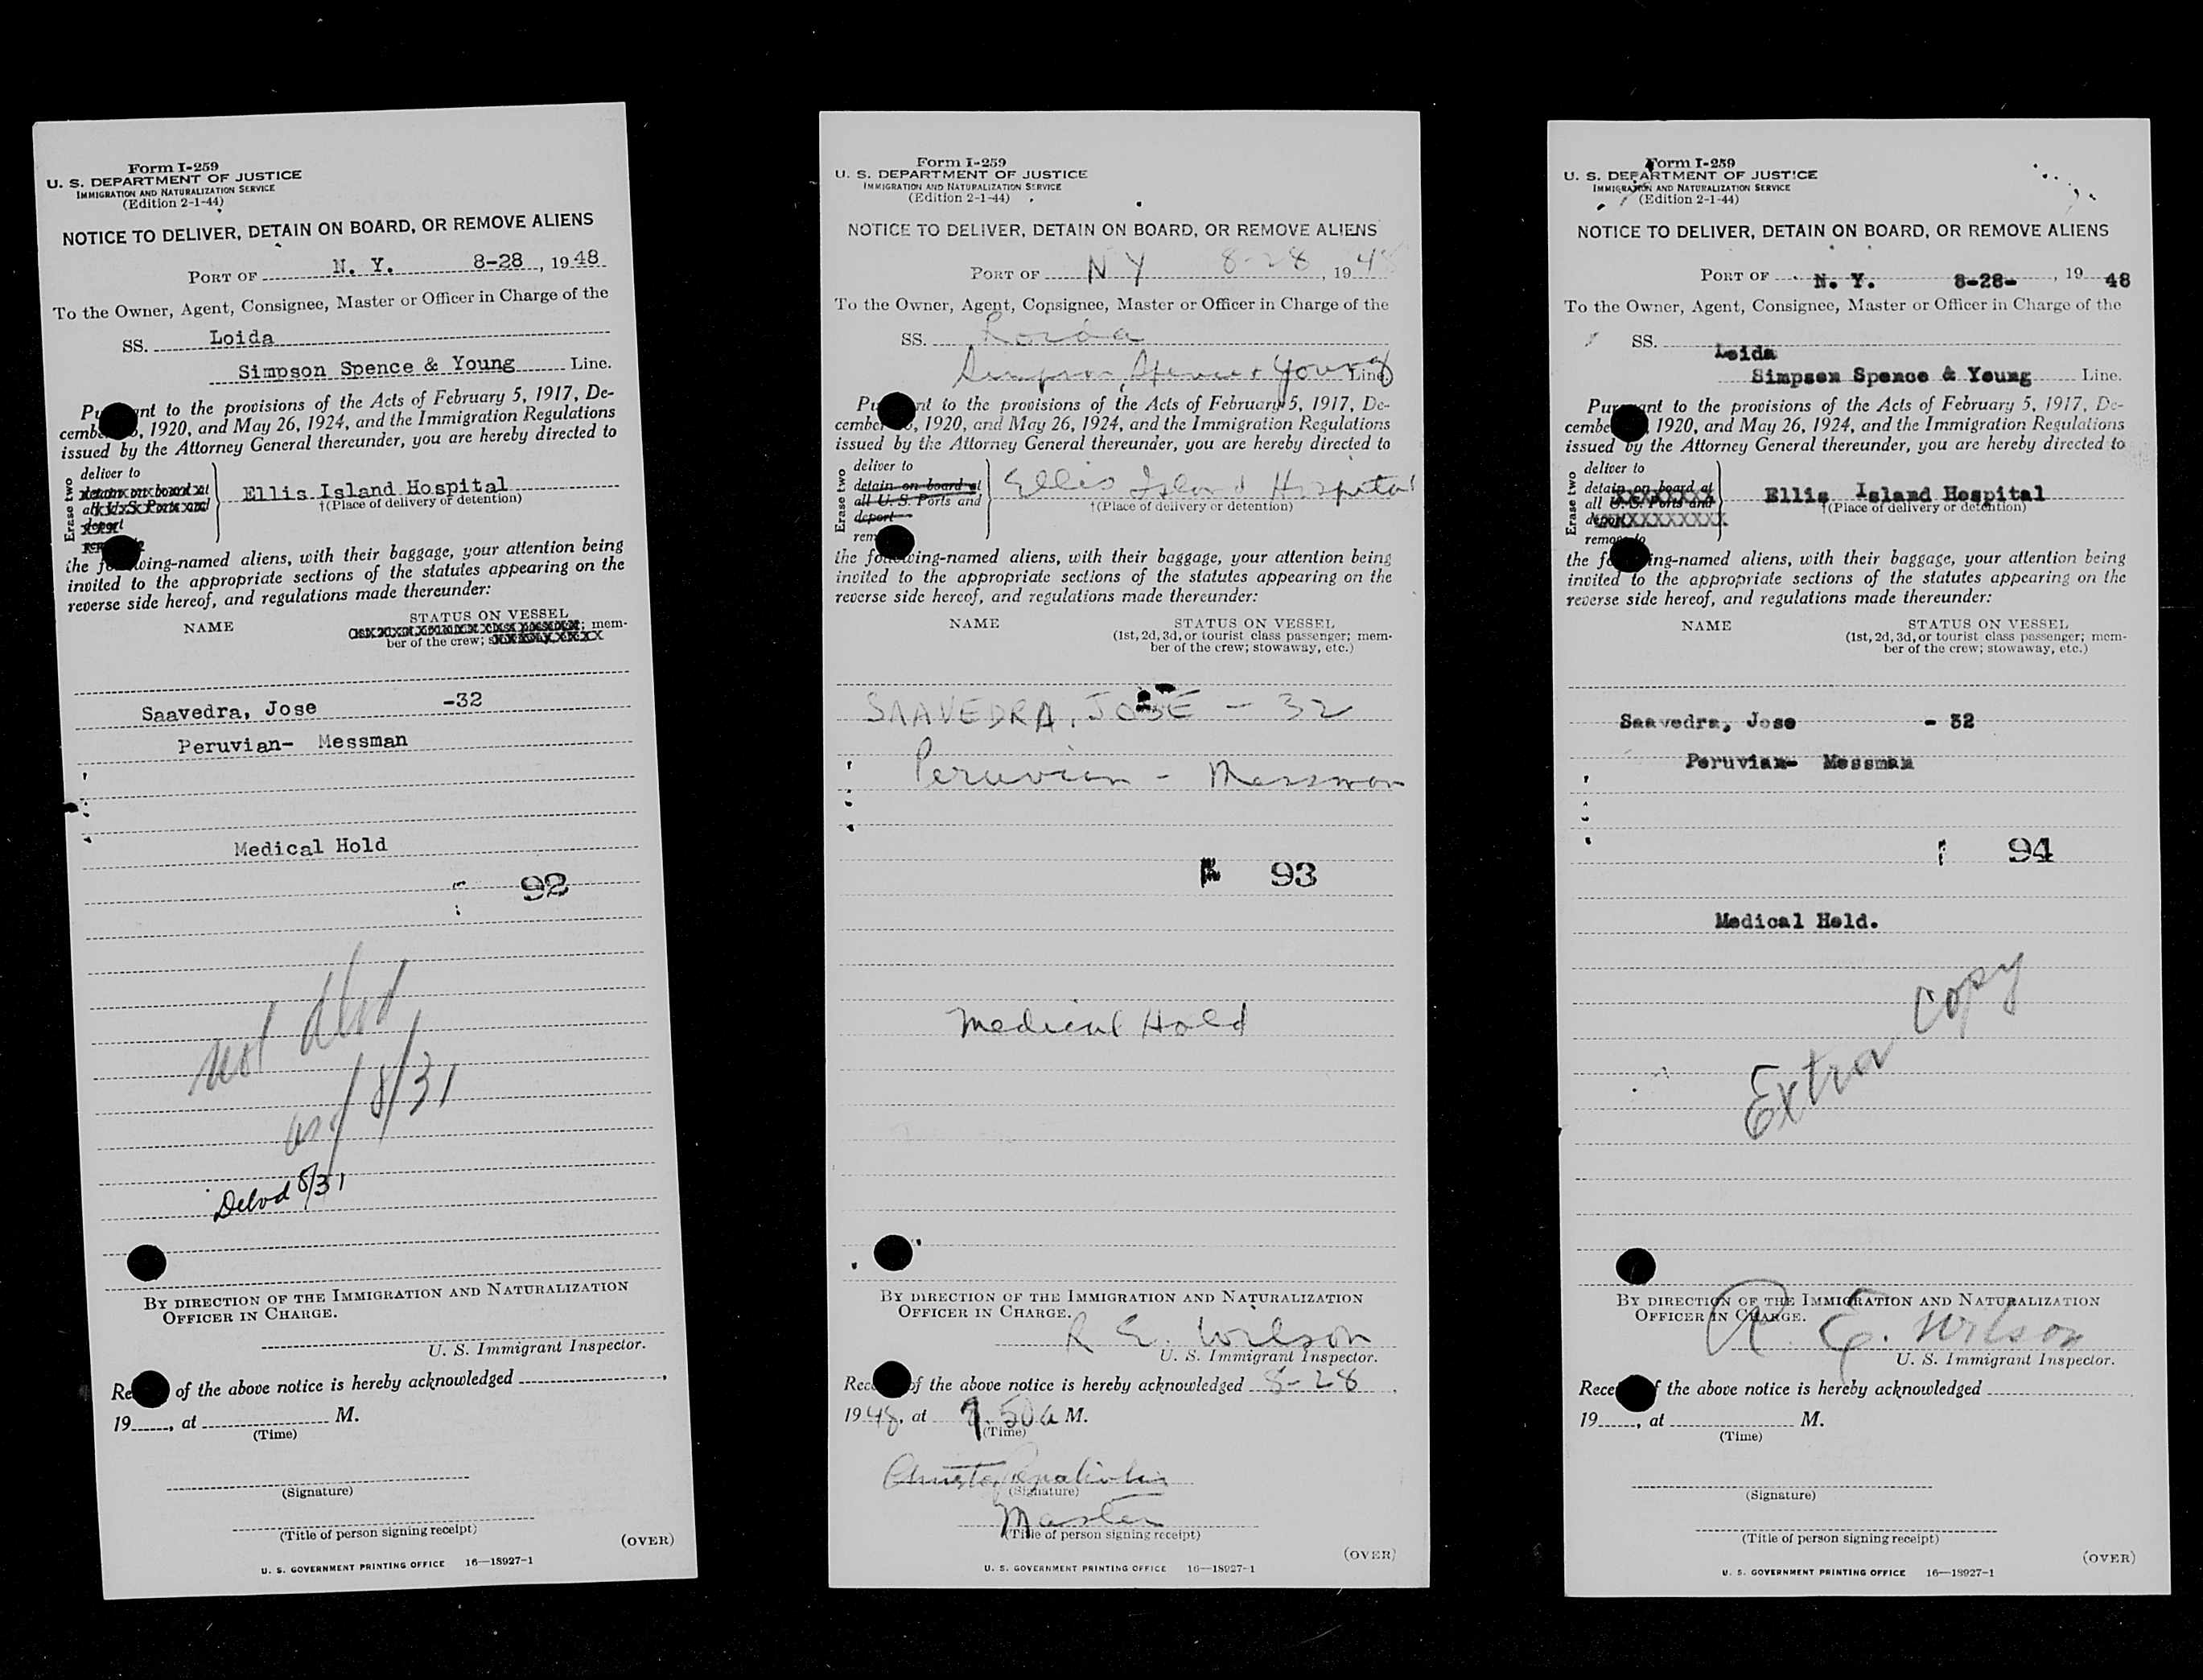 Form I-259
U. S. DEPARTMENT OF JUSTICE
IMMIGRATION AND NATURALIZATION SERVICE
(Edition 2-1-44)
NOTICE TO DELIVER, DETAIN ON BOARD, OR REMOVE ALIENS
PORT OF N. Y. 8-28, 1948
To the Owner, Agent, Consignee, Master or Officer in Charge of the
SS. Loida
Simpson Spence & Young Line.
Pu nt to the provisions of the Acts of February 5, 1917, De-
cembe , 1920, and May 26, 1924, and the Immigration Regulations
issued by the Attorney General thereunder, you are hereby directed to
Erase two
deliver to
detain on board at
all U. S. Ports and
deport
Ellis Island Hospital
†(Place of delivery or detention)
the fo wing-named aliens, with their baggage, your attention being
invited to the appropriate sections of the statutes appearing on the
reverse side hereof, and regulations made thereunder:
NAME STATUS ON VESSEL
; mem-
ber of the crew;
Saavedra, Jose -32
Peruvian- Messman
Medical Hold
92
not dlvd
as of 8/31
Delvd 8/31
BY DIRECTION OF THE IMMIGRATION AND NATURALIZATION
OFFICER IN CHARGE.
U. S. Immigrant Inspector.
Re of the above notice is hereby acknowledged
19 , at M.
(Time)
(Signature)
(Title of person signing receipt)
(OVER)
U. S. GOVERNMENT PRINTING OFFICE 16—18927-1
Form I-259
U. S. DEPARTMENT OF JUSTICE
IMMIGRATION AND NATURALIZATION SERVICE
(Edition 2-1-44)
NOTICE TO DELIVER, DETAIN ON BOARD, OR REMOVE ALIENS
PORT OF N Y 8-28, 1948
To the Owner, Agent, Consignee, Master or Officer in Charge of the
SS. Loida
Simpson, Spence & Young Line
Pu nt to the provisions of the Acts of February 5, 1917, De-
cember , 1920, and May 26, 1924, and the Immigration Regulations
issued by the Attorney General thereunder, you are hereby directed to
Erase two
deliver to
detain on board at
all U. S. Ports and
deport
rem
Ellis Island Hospital
†(Place of delivery or detention)
the following-named aliens, with their baggage, your attention being
invited to the appropriate sections of the statutes appearing on the
reverse side hereof, and regulations made thereunder:
NAME STATUS ON VESSEL
(1st, 2d, 3d, or tourist class passenger; mem-
ber of the crew; stowaway, etc.)
SAAVEDRA, JOSE - 32
Peruvian - Messman
93
Medical Hold
BY DIRECTION OF THE IMMIGRATION AND NATURALIZATION
OFFICER IN CHARGE.
R E. Wilson
U. S. Immigrant Inspector.
Rec of the above notice is hereby acknowledged 8-28
1948, at 9.50 a M.
(Time)
(Signature)
Master
(Title of person signing receipt)
(OVER)
U. S. GOVERNMENT PRINTING OFFICE 16—18927-1
Form I-259
U. S. DEPARTMENT OF JUSTICE
IMMIGRATION AND NATURALIZATION SERVICE
(Edition 2-1-44)
NOTICE TO DELIVER, DETAIN ON BOARD, OR REMOVE ALIENS
PORT OF N. Y. 8-28- , 19 48
To the Owner, Agent, Consignee, Master or Officer in Charge of the
SS. Loida
Simpson Spence & Young Line.
Pur ant to the provisions of the Acts of February 5, 1917, De-
cembe 1920, and May 26, 1924, and the Immigration Regulations
issued by the Attorney General thereunder, you are hereby directed to
Erase two
deliver to
detain on board at
all U. S. Ports and
deport
remove to
Ellis Island Hospital
†(Place of delivery or detention)
the fo ing-named aliens, with their baggage, your attention being
invited to the appropriate sections of the statutes appearing on the
reverse side hereof, and regulations made thereunder:
NAME STATUS ON VESSEL
(1st, 2d, 3d, or tourist class passenger; mem-
ber of the crew; stowaway, etc.)
Saavedra, Jose - 32
Peruvian- Messman
94
Medical Hold.
Extra copy
BY DIRECTION OF THE IMMIGRATION AND NATURALIZATION
OFFICER IN CHARGE.
R. E. Wilson
U. S. Immigrant Inspector.
Rece f the above notice is hereby acknowledged
19 , at M.
(Time)
(Signature)
(Title of person signing receipt)
(OVER)
U. S. GOVERNMENT PRINTING OFFICE 16—18927-1